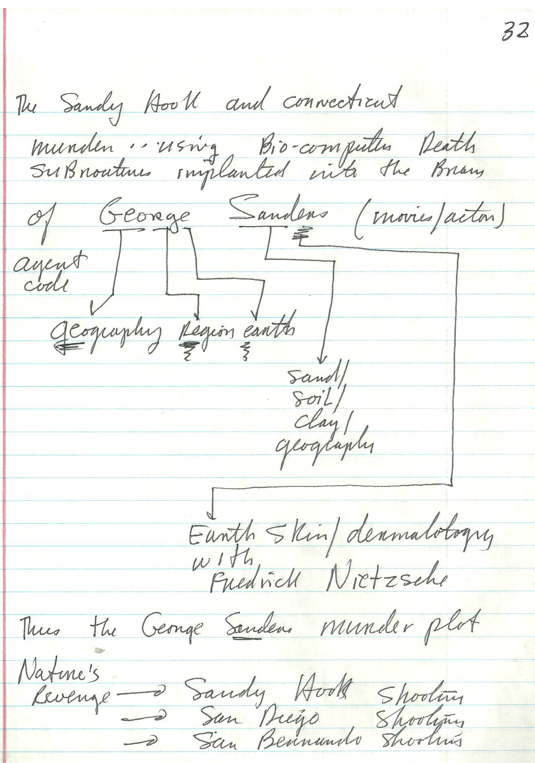 32
The Sandy Hook and connecticut
murder .. using Bio-computer Death
SUBroutines implanted into the Brain
of George Sanders (movies/actor)
agent
code
geography Region earth
sand/
soil/
clay/
geography
Earth Skin/dermatology
with
Fredrick Nietzsche
Thus the George Sanders murder plot
Nature's
Revenge → Sandy Hook Shooting
→ San Diego Shooting
→ San Bernando Shooting